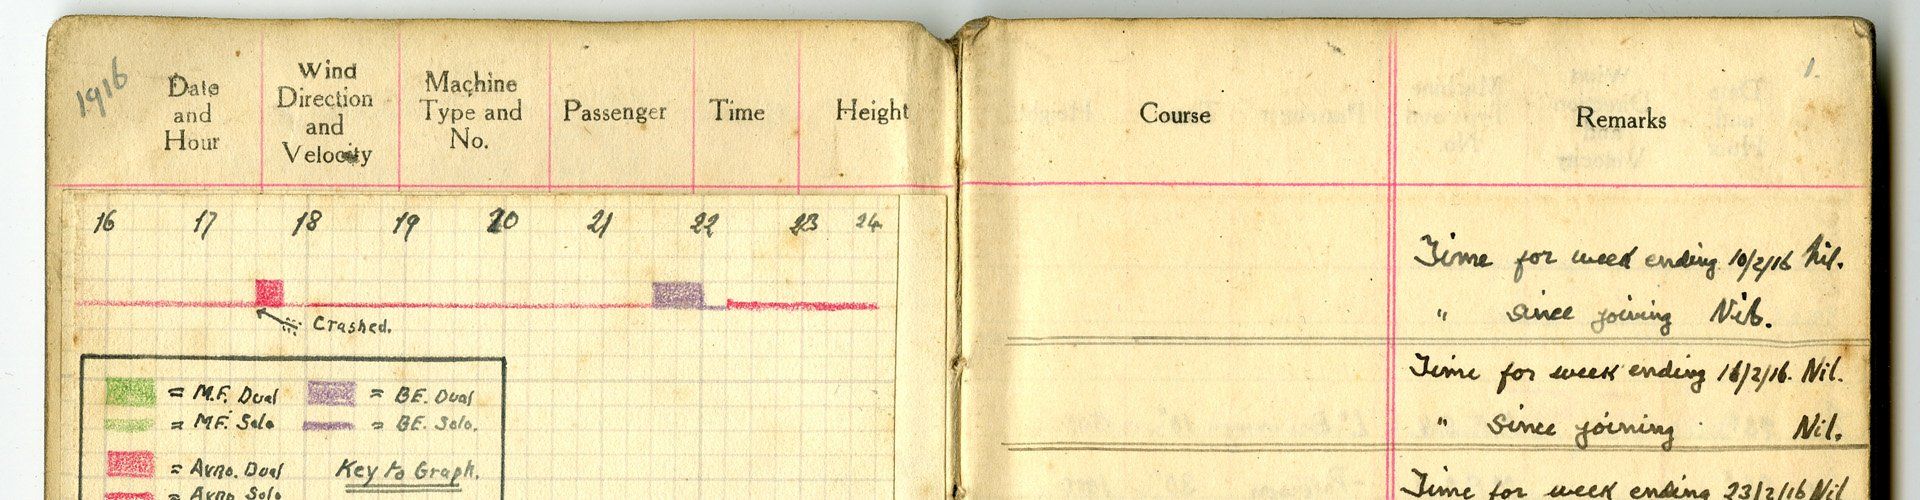 1916
Date and Hour
Wind Direction and Velocity
Machine Type and No.
Passenger
Time
Height
16 17 18 19 20 21 22 23 24
Crashed.
= M.F. Dual
= B.E. Dual
= M.F. Solo
= B.E. Solo.
= Avro. Dual
Key to Graph.
= Avro Solo
1.
Course
Remarks
Time for week ending 10/2/16 Nil.
" since joining Nil.
Time for week ending 16/2/16. Nil.
" since joining Nil.
Time for week ending 23/2/16 Nil